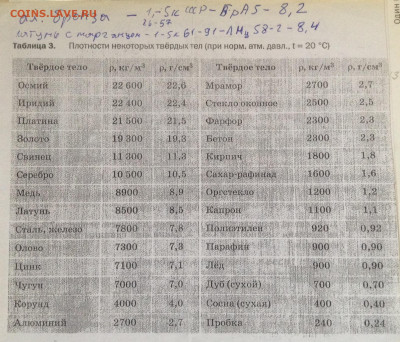 COINS.LAVE.RU
ал. бронзы – 1,-5к СССР – БрА5 – 8,2
26-57
латунь с марганцем – 1-5к 61-91 – ЛМц 58-2 – 8,4
Один
Таблица 3. Плотности некоторых твёрдых тел (при норм. атм. давл., t = 20 °C)
Твёрдое тело ρ, кг/м³ ρ, г/см³ Твёрдое тело ρ, кг/м³ ρ, г/см³
Осмий 22 600 22,6 Мрамор 2700 2,7
Иридий 22 400 22,4 Стекло оконное 2500 2,5
Платина 21 500 21,5 Фарфор 2300 2,3
Золото 19 300 19,3 Бетон 2300 2,3
Свинец 11 300 11,3 Кирпич 1800 1,8
Серебро 10 500 10,5 Сахар-рафинад 1600 1,6
Медь 8900 8,9 Оргстекло 1200 1,2
Латунь 8500 8,5 Капрон 1100 1,1
Сталь, железо 7800 7,8 Полиэтилен 920 0,92
Олово 7300 7,3 Парафин 900 0,90
Цинк 7100 7,1 Лёд 900 0,90
Чугун 7000 7,0 Дуб (сухой) 700 0,70
Корунд 4000 4,0 Сосна (сухая) 400 0,40
Алюминий 2700 2,7 Пробка 240 0,24